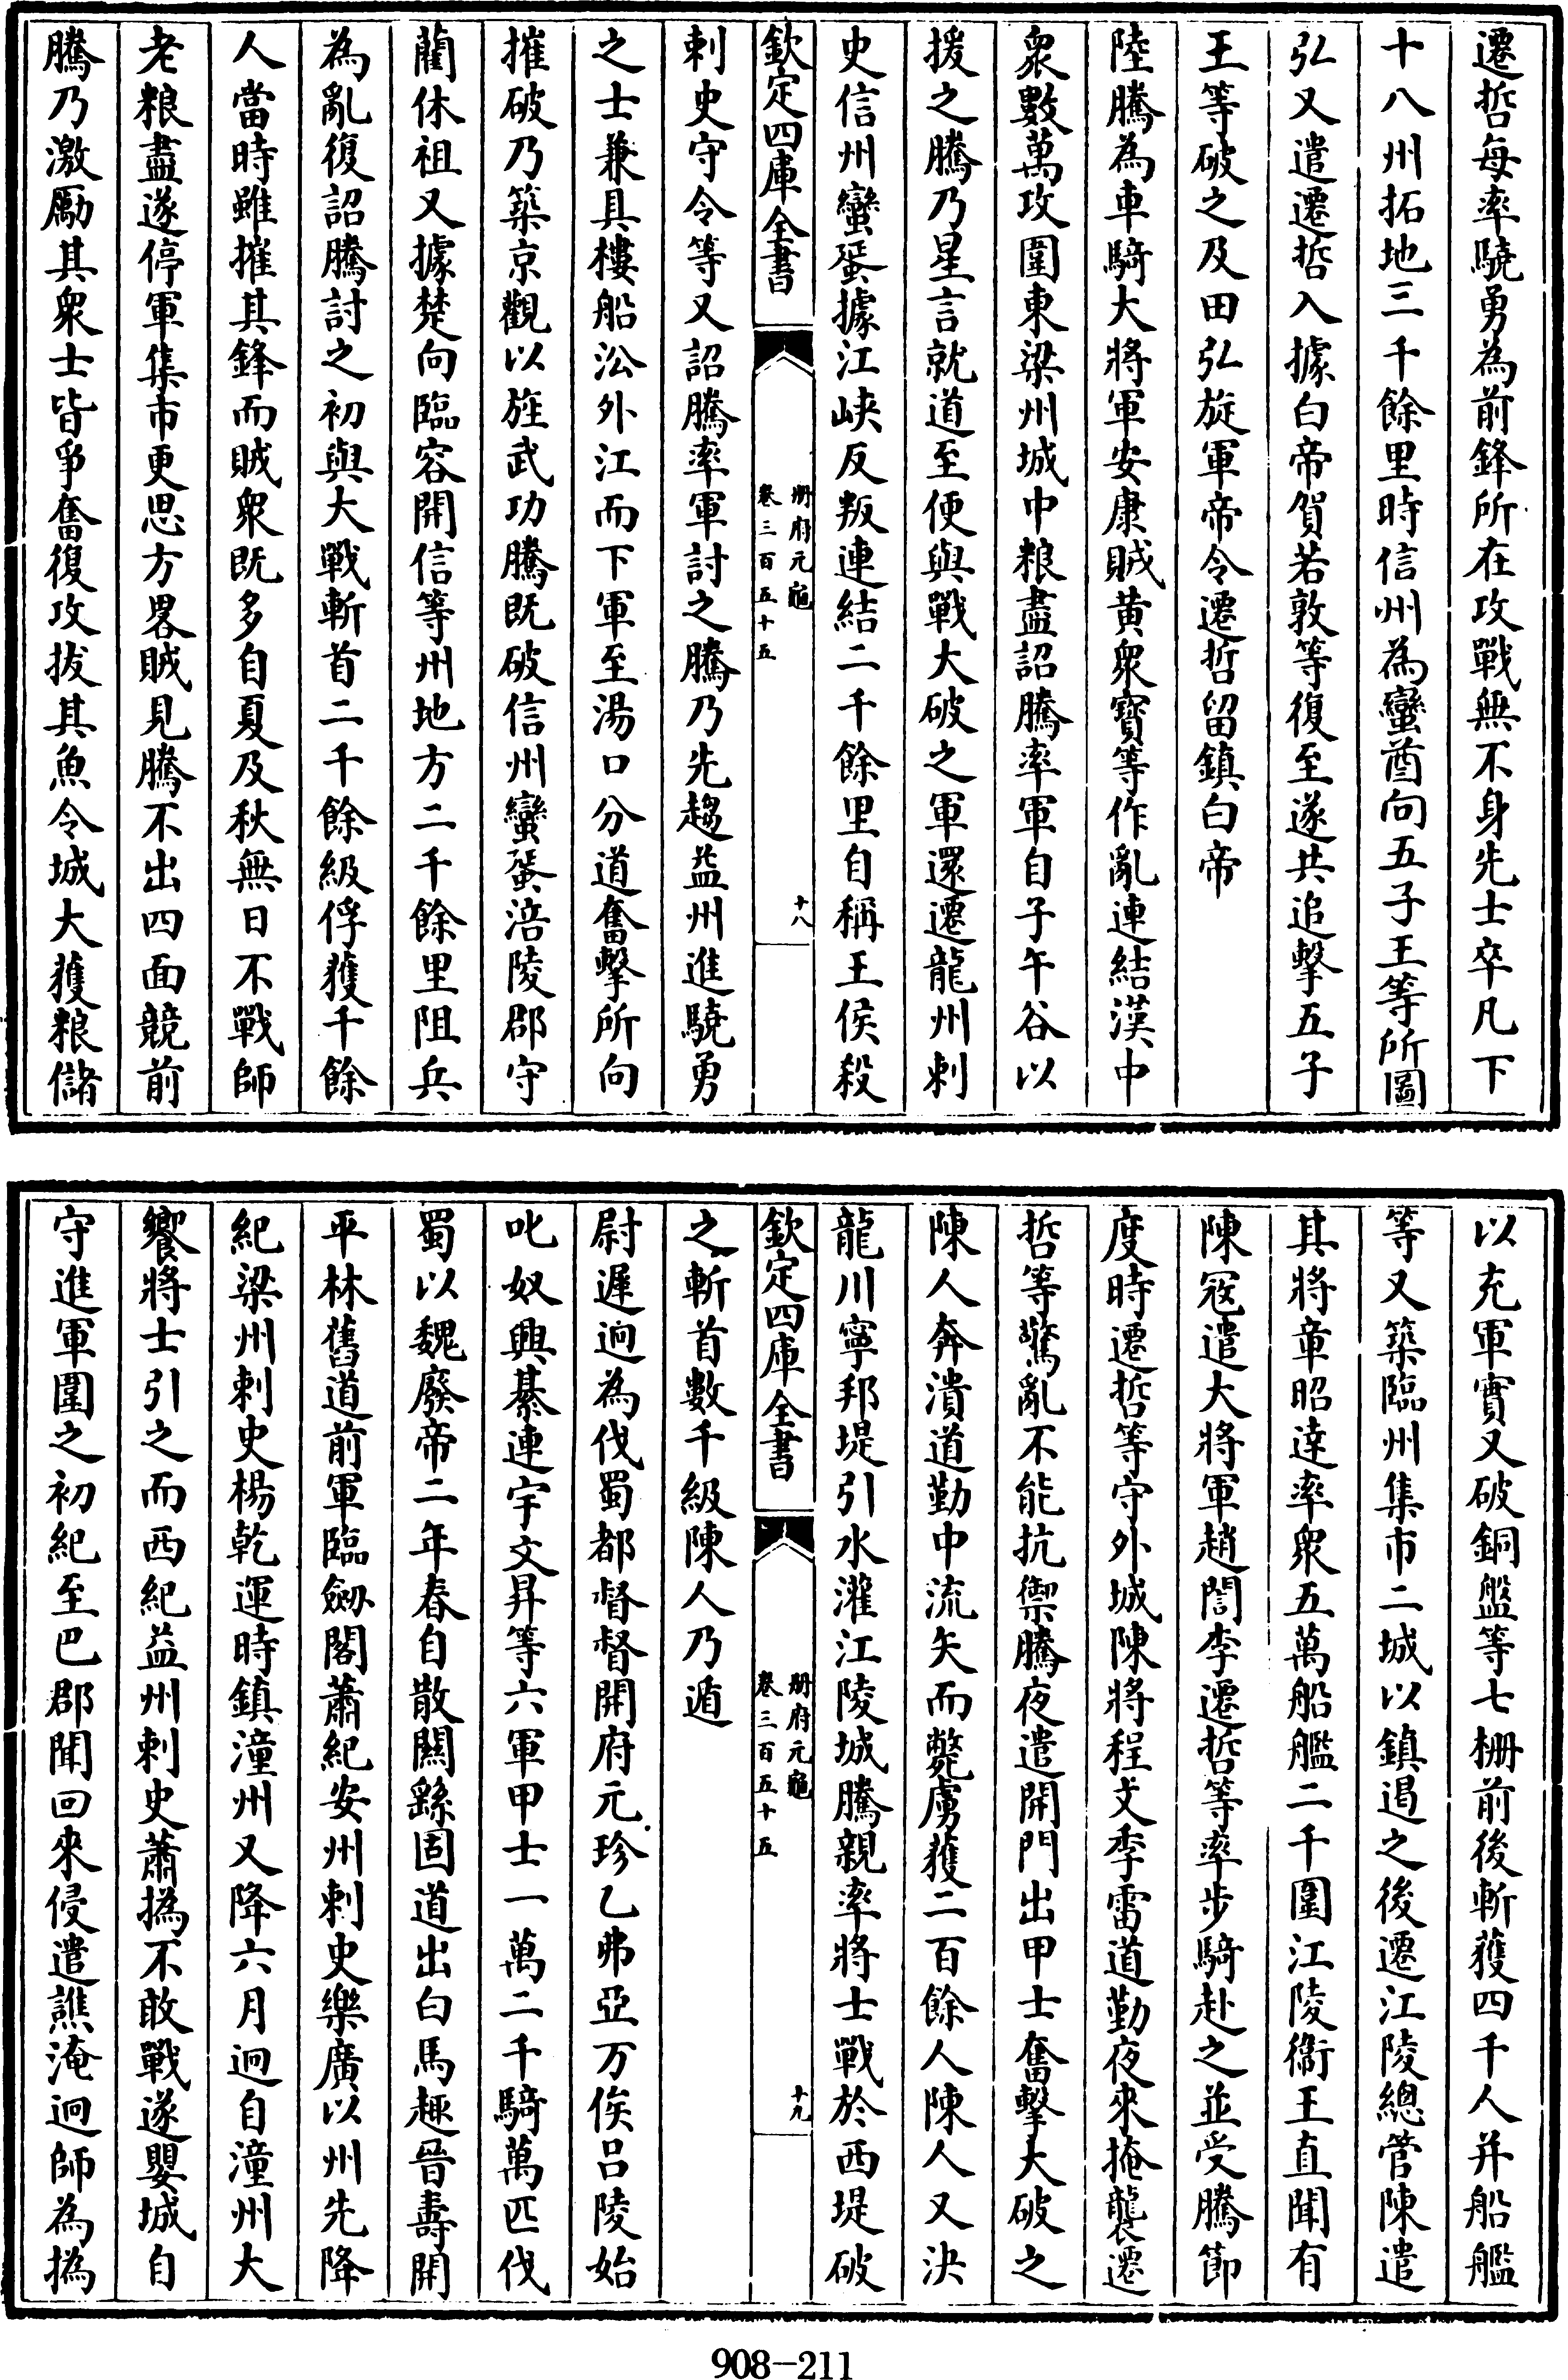 遷哲每率驍勇為前鋒所在攻戰無不身先士卒凡下
十八州拓地三千餘里時信州為蠻酋向五子王等所圖
弘又遣遷哲入據白帝賀若敦等復至遂共追擊五子
王等破之及田弘旋軍帝令遷哲留鎮白帝
陸騰為車騎大將軍安康賊黃衆寶等作亂連結漢中
衆數萬攻圍東梁州城中粮盡詔騰率軍自子午谷以
援之騰乃星言就道至便與戰大破之軍還遷龍州刺
史信州蠻蜑據江峽反叛連結二千餘里自稱王侯殺
欽定四庫全書
冊府元龜
卷三百五十五
十八
刺史守令等又詔騰率軍討之騰乃先趨益州進驍勇
之士兼具樓船㳂外江而下軍至湯口分道奮擊所向
摧破乃築京觀以旌武功騰既破信州蠻蜑涪陵郡守
藺休祖又據楚向臨容開信等州地方二千餘里阻兵
為亂復詔騰討之初與大戰斬首二千餘級俘獲千餘
人當時雖摧其鋒而賊衆既多自夏及秋無日不戰師
老粮盡遂停軍集市更思方畧賊見騰不出四面競前
騰乃激勵其衆士皆爭奮復攻拔其魚令城大獲粮儲
以充軍實又破銅盤等七柵前後斬獲四千人并船艦
等又築臨州集市二城以鎮遏之後遷江陵總管陳遣
其將章昭達率衆五萬船艦二千圍江陵衞王直聞有
陳冦遣大將軍趙誾李遷哲等率步騎赴之並受騰節
度時遷哲等守外城陳將程文季雷道勤夜來掩襲遷
哲等驚亂不能抗禦騰夜遣開門出甲士奮擊大破之
陳人奔潰道勤中流矢而斃虜獲二百餘人陳人又決
龍川寧邦堤引水灌江陵城騰親率將士戰於西堤破
欽定四庫全書
冊府元龜
卷三百五十五
十九
之斬首數千級陳人乃遁
尉遲迥為伐蜀都督督開府元珍乙弗亞万俟呂陵始
叱奴興綦連宇文昇等六軍甲士一萬二千騎萬匹伐
蜀以魏廢帝二年春自散關繇固道出白馬趣晉壽開
平林舊道前軍臨劒閣蕭紀安州刺史樂廣以州先降
紀梁州刺史楊乾運時鎮潼州又降六月迥自潼州大
饗將士引之而西紀益州刺史蕭撝不敢戰遂嬰城自
守進軍圍之初紀至巴郡聞回來侵遣譙淹迥師為撝
908-211